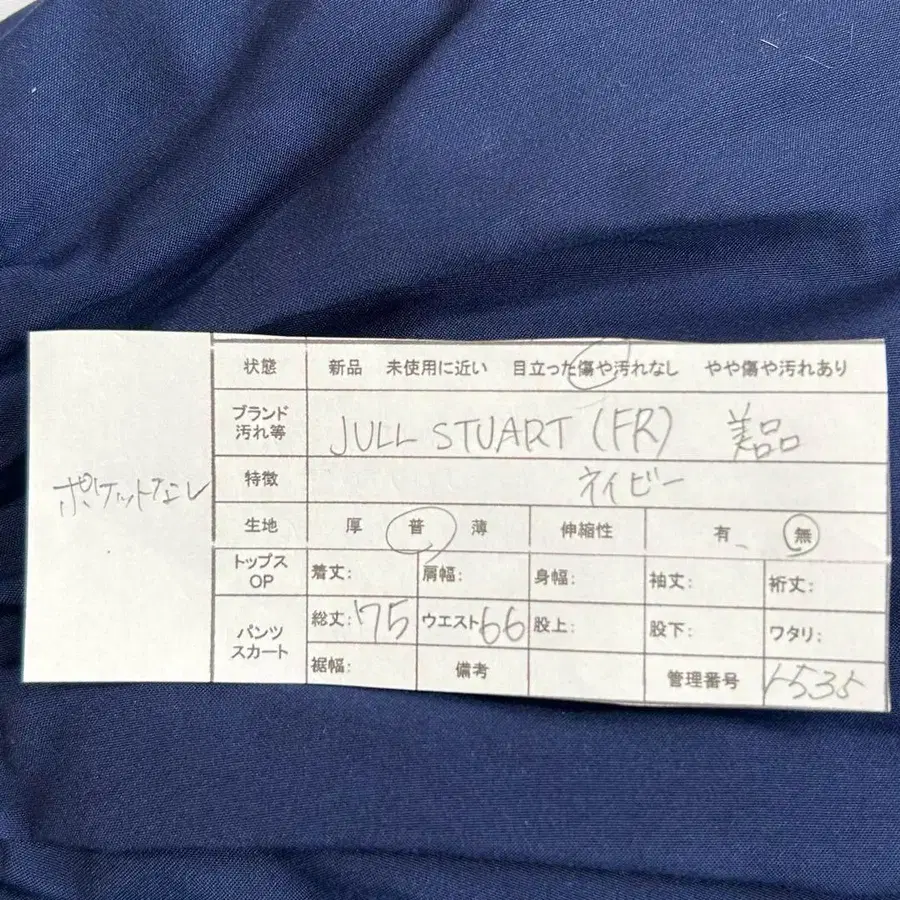 状態 新品 未使用に近い 目立った傷や汚れなし やや傷や汚れあり
ブランド
汚れ等
JULL STUART (FR) 美品
特徴 ネイビー
ポケットなし
生地 厚 普 薄 伸縮性 有 無
トップス
OP
着丈: 肩幅: 身幅: 袖丈: 裄丈:
パンツ
スカート
総丈: 75 ウエスト 66 股上: 股下: ワタリ:
裾幅: 備考 管理番号